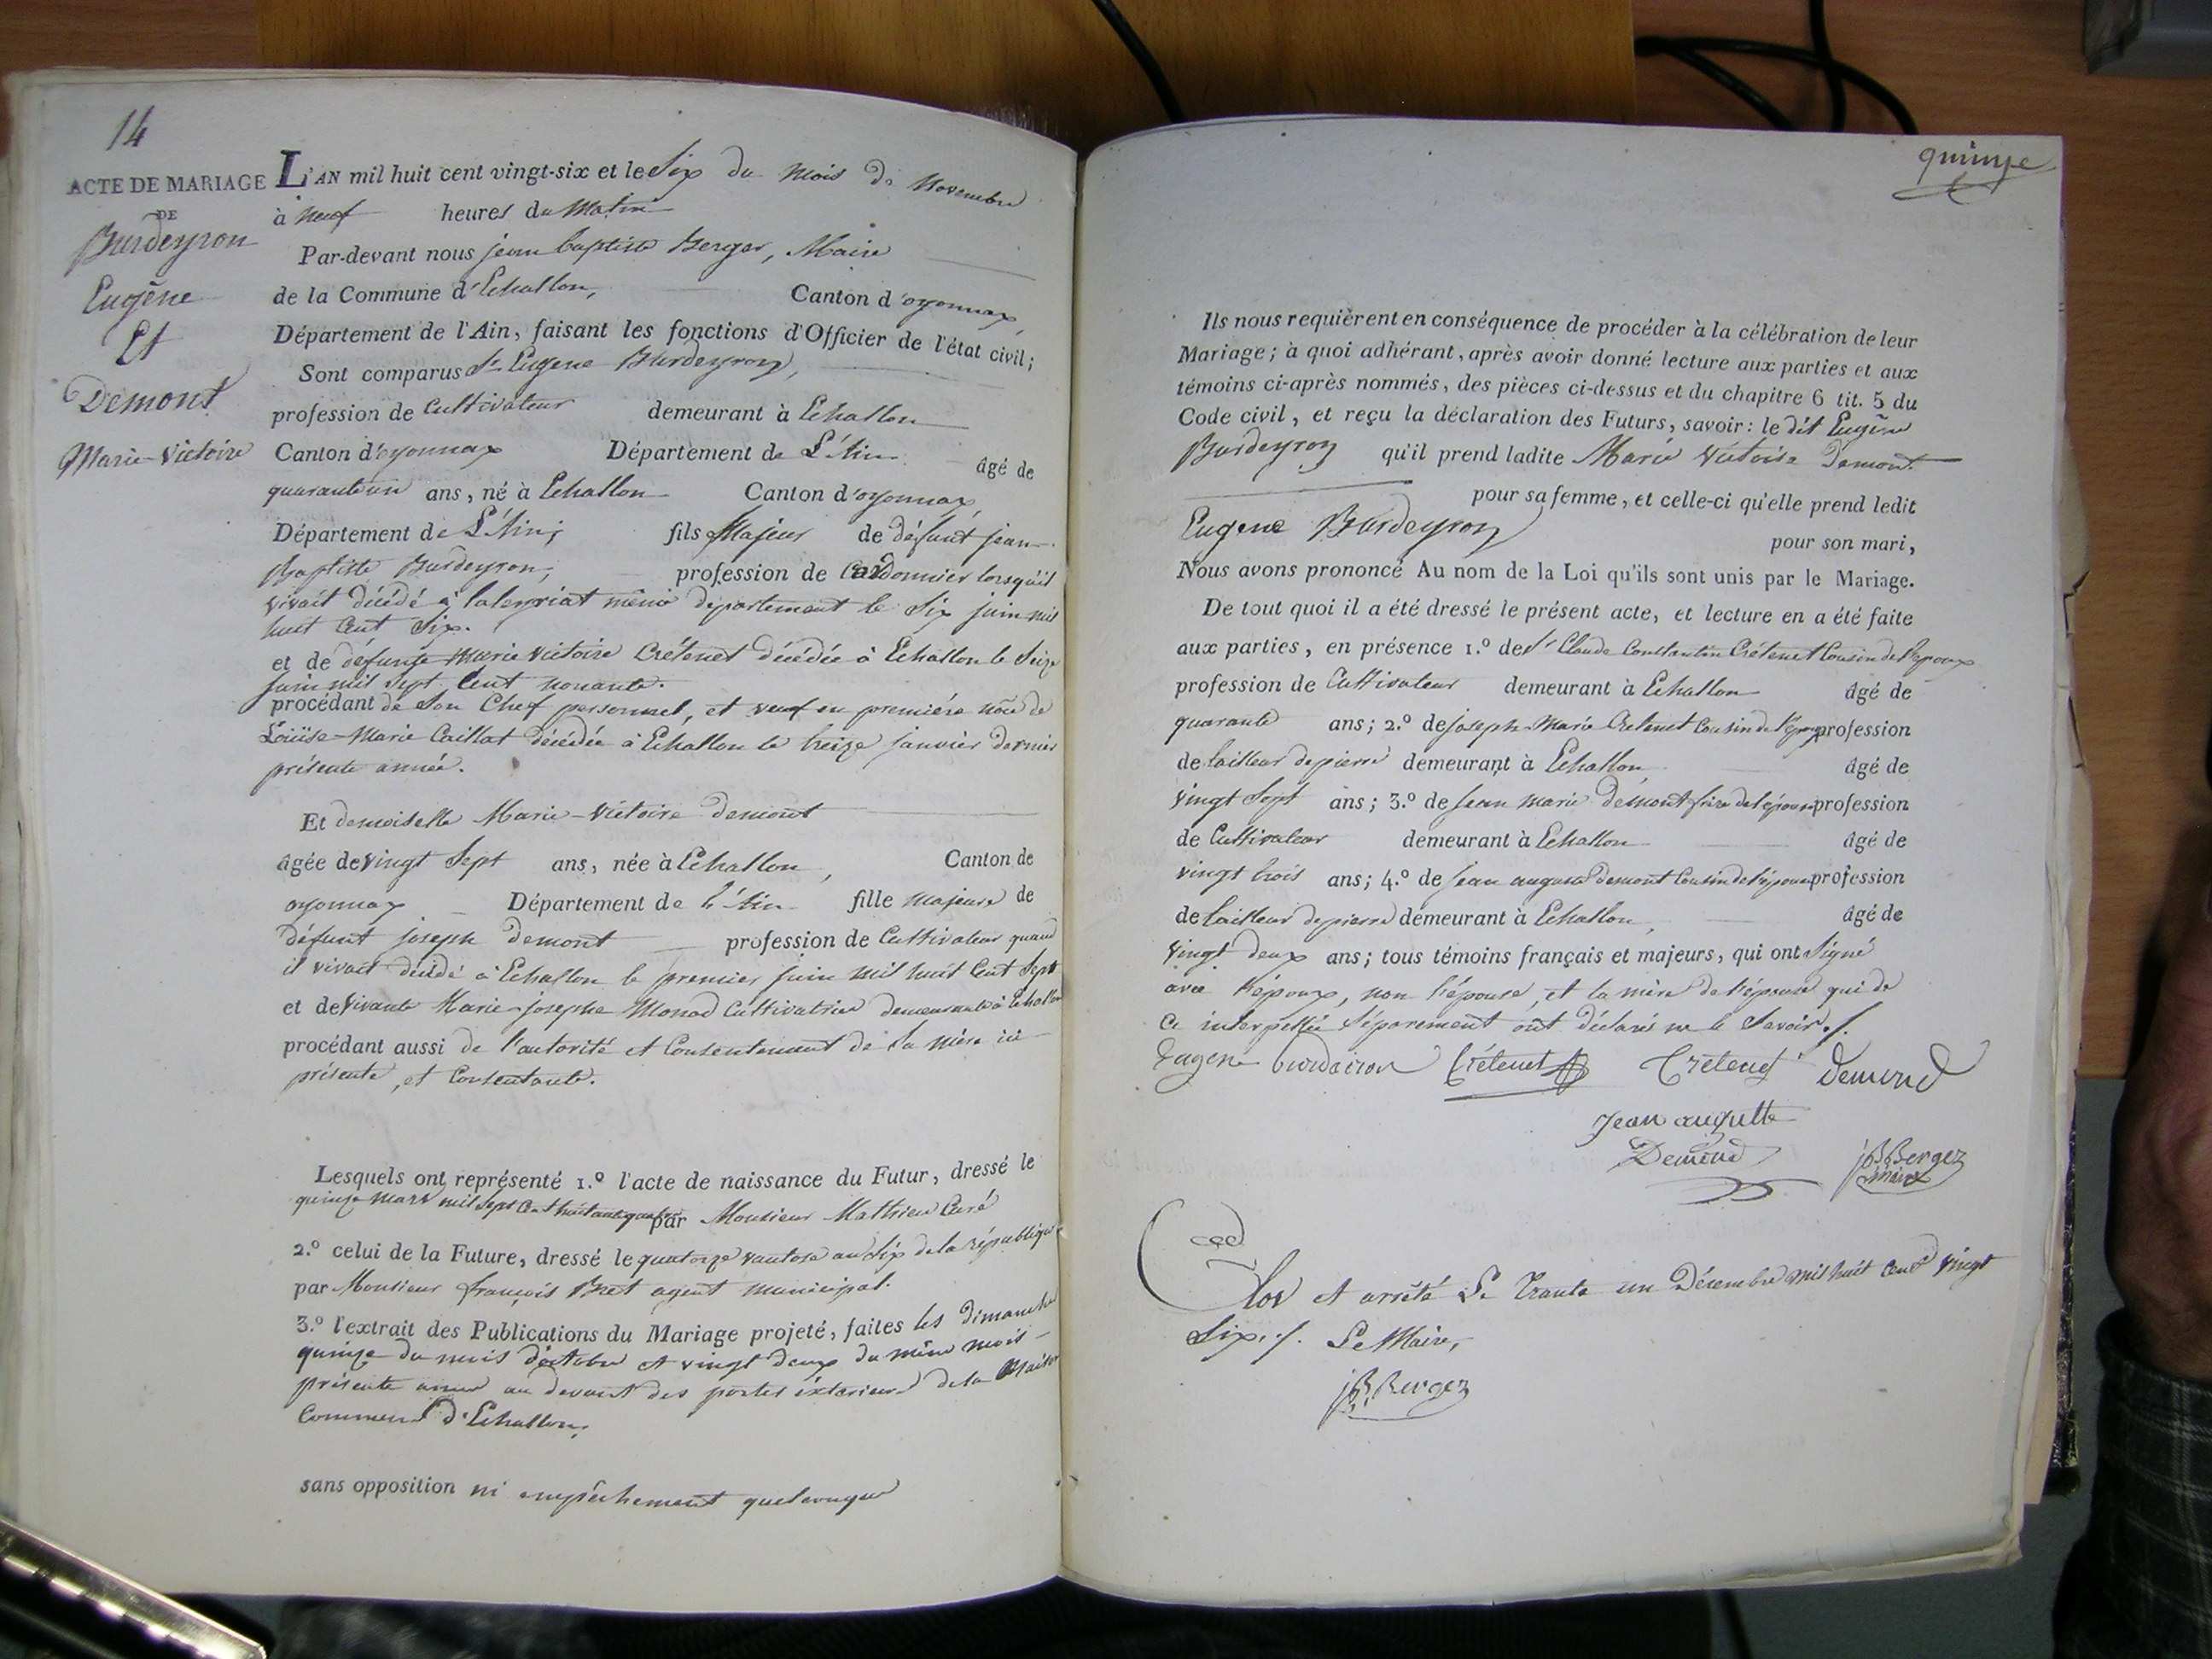 14
ACTE DE MARIAGE
DE
Burdeyron
Eugène
Et
Demont
Marie-Victoire
L'AN mil huit cent vingt-six et le Six du mois de Novembre
à Neuf heures du Matin
Par-devant nous jean baptiste Berger, Maire
de la Commune d'Echallon, Canton d'oyonnax,
Département de l'Ain, faisant les fonctions d'Officier de l'état civil;
Sont comparus Sr Eugene Burdeyron,
profession de Cultivateur demeurant à Echallon
Canton d'oyonnax Département de L'Ain âgé de
quarante un ans, né à Echallon Canton d'oyonnax,
Département de L'Ain; fils Majeur de défunt jean-
Baptiste Burdeyron, profession de Cordonnier lorsqu'il
vivait décédé à même département le Six juin mil
huit Cent Six.
et de défunte Marie Victoire Crétenet décédée à Echallon le Seize
juin mil Sept Cent nonante.
procédant de Son Chef personnel, et veuf en première noce de
Louise-Marie Caillat décédée à Echallon le treize janvier dernier
présente année.
Et demoiselle Marie-Victoire demont
âgée de vingt Sept ans, née à Echallon, Canton de
oyonnax Département de L'Ain fille majeure de
défunt joseph demont profession de Cultivateur quand
il vivait décédé à Echallon le premier juin mil huit Cent Sept
et de vivante Marie-josephe Monod Cultivatrice demeurante à Echallon
procédant aussi de l'autorité et Consentement de Sa mère ici
présente, et Consentante.
Lesquels ont représenté 1.º l'acte de naissance du Futur, dressé le
quinze mars mil Sept Cent huitante quatre par Monsieur Mathieu Curé
2.º celui de la Future, dressé le quatorze vantose an Six de la république
par Monsieur françois Bret agent municipal.
3.º l'extrait des Publications du Mariage projeté, faites les dimanche
quinze du mois d'octobre et vingt deux du même mois
présente année au devant des portes éxterieures de la Maison
Commune d'Echallon,
sans opposition ni empêchement quelconque
quinze
Ils nous requièrent en conséquence de procéder à la célébration de leur
Mariage; à quoi adhérant, après avoir donné lecture aux parties et aux
témoins ci-après nommés, des pièces ci-dessus et du chapitre 6 tit. 5 du
Code civil, et reçu la déclaration des Futurs, savoir: le dit Eugène
Burdeyron qu'il prend ladite Marie Victoire demont
pour sa femme, et celle-ci qu'elle prend ledit
Eugene Burdeyron pour son mari,
Nous avons prononcé Au nom de la Loi qu'ils sont unis par le Mariage.
De tout quoi il a été dressé le présent acte, et lecture en a été faite
aux parties, en présence 1.º de Sr Claude Constantin Crétenet Cousin de l'époux
profession de Cultivateur demeurant à Echallon âgé de
quarante ans; 2.º de joseph-Marie Cretenet Cousin de l'époux profession
de tailleur de pierre demeurant à Echallon âgé de
vingt Sept ans; 3.º de jean marie demont frère de l'épouse profession
de Cultivateur demeurant à Echallon âgé de
vingt trois ans; 4.º de jean auguste demont Cousin de l'épouse profession
de tailleur de pierre demeurant à Echallon, âgé de
vingt deux ans; tous témoins français et majeurs, qui ont Signé
avec l'époux, non l'épouse, et la mère de l'épouse qui de
ce interpellée Séparement ont déclaré ne le Savoir./.
Eugene burdairon Crétenet Crétenet demond
jean augutte
Demond
jB Berger
maire
Clos et arrêté Le trante un Décembre mil huit Cent vingt
Six./. Le Maire,
jB Berger